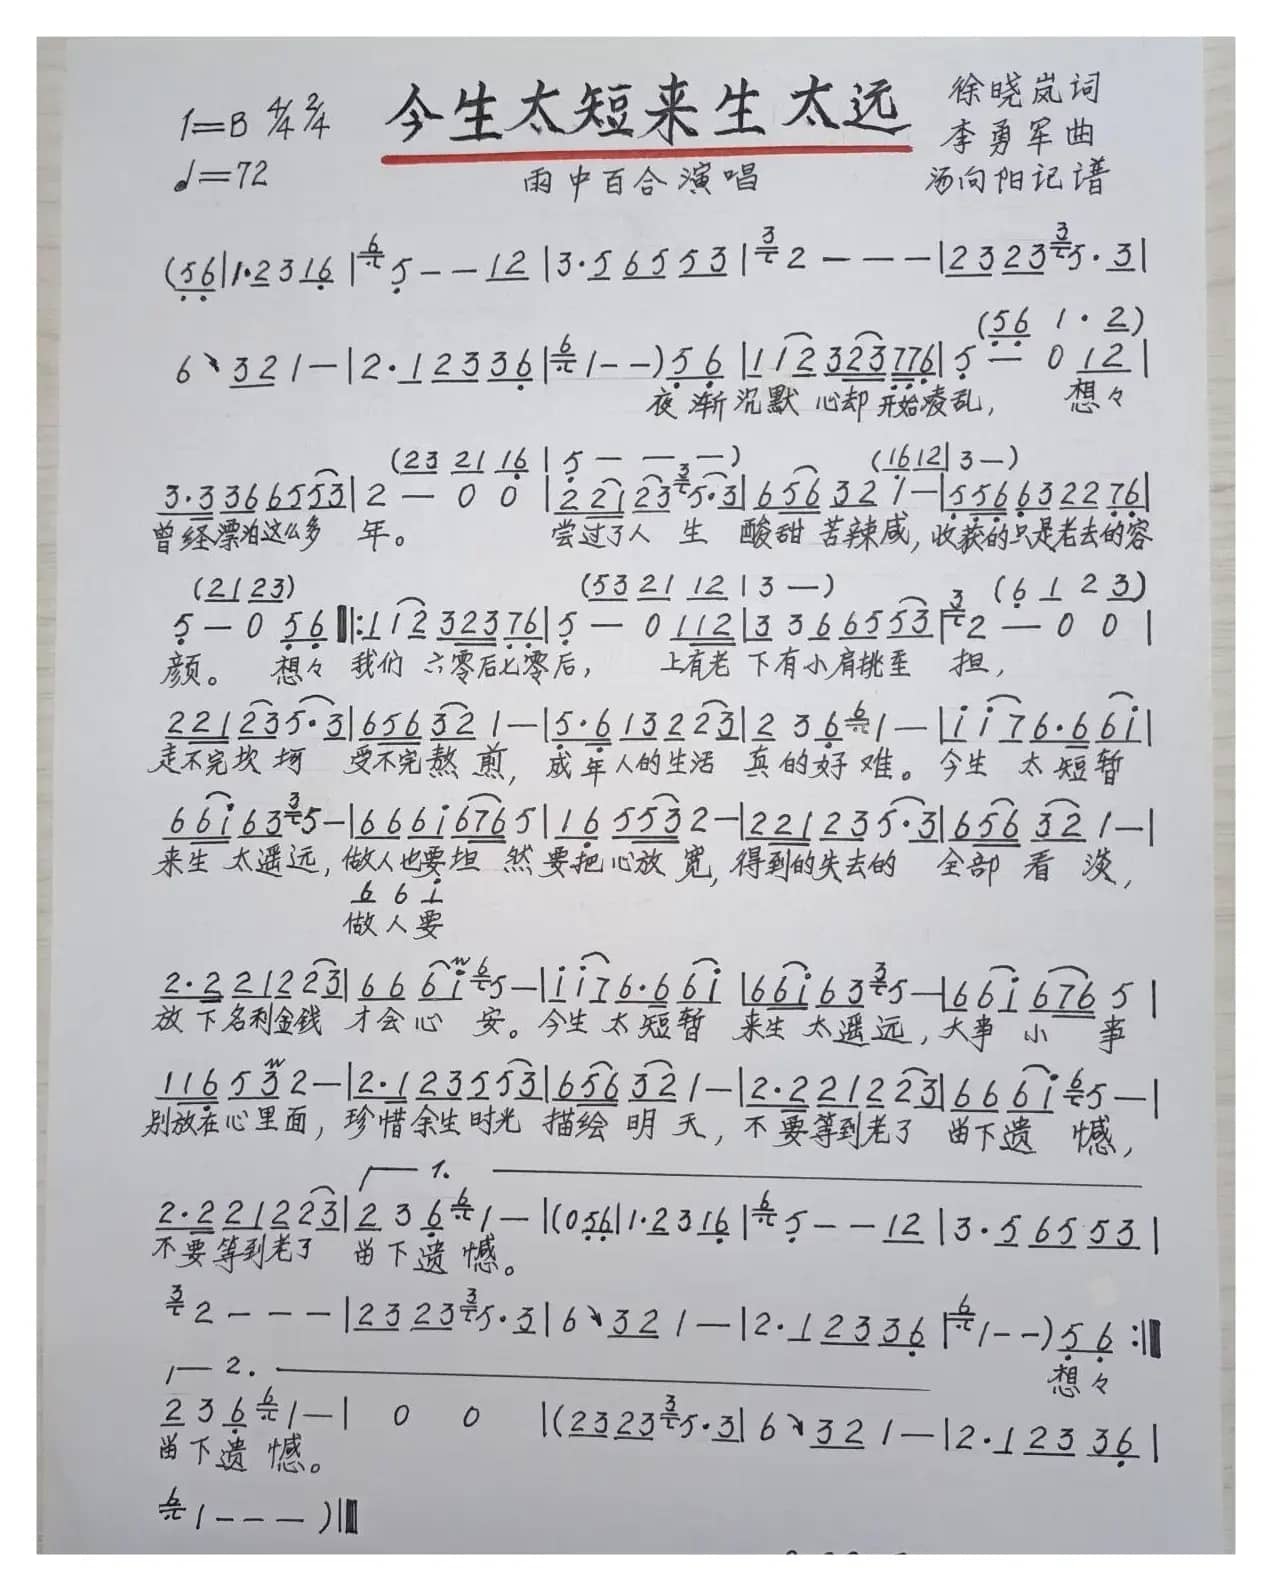 今生太短来生太远
徐晓岚词
1=B 4/4 2/4
李勇军曲
♩=72
雨中百合演唱
汤向阳记谱
(56|1·2316|6 5--12|3·56553|3 2---|23233 5·3|
(56 1·2)
6 321-|2·12336|6 1--)56|112323776|5-012|
夜渐沉默 心却开始凌乱, 想々
(23 21 16|5---) (1612|3-)
3·3366553|2-00|221233 5·3|656321-|556632276|
曾经漂泊这么多 年。 尝过了人生 酸甜苦辣咸,收获的只是老去的容
(2123) (532112|3-) (6123)
5-056‖:11232376|5-0112|3366553|3 2-00|
颜。 想々 我们 六零后七零后, 上有老 下有小肩挑重 担,
221235·3|656321-|5·6132223|2366 1-|1176·661|
走不完坎坷 受不完熬煎, 成年人的生活 真的好难。 今生 太短暂
661633 5-|66616765|165532-|221235·3|656321-|
来生 太遥远, 做人也要坦 然 要把心放宽, 得到的失去的 全部 看 淡,
6 6 1
做人要
2·2212223|66616 5-|1176·661|661633 5-|6616765|
放下名利金钱 才会心 安。 今生 太短暂 来生 太遥远, 大事 小 事
116532-|2·123553|656321-|2·2212223|66616 5-|
别放在心里面, 珍惜余生时光 描绘 明 天, 不要等到老了 留下遗 憾,
1.
2·2212223|2366 1-|(056|1·2316|6 5--12|3·56553|
不要等到老了 留下遗憾。
3 2---|23233 5·3|6 321-|2·12336|6 1--)56:‖
想々
2.
2366 1-|0 0|(23233 5·3|6 321-|2·12336|
留下遗 憾。
6 1---)‖